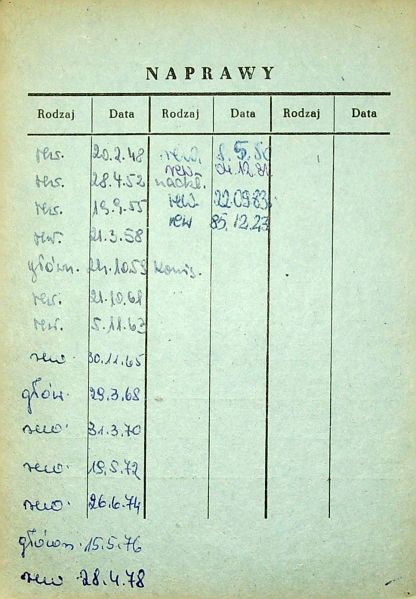 NAPRAWY
Rodzaj Data Rodzaj Data Rodzaj Data
rew. 20.2.48
rew. 28.4.52
rew. 19.9.55
rew. 21.3.58
główn. 24.10.59 komis.
rew. 21.10.61
rew. 5.11.63
rew. 30.11.65
głów. 29.3.68
rew. 31.3.70
rew. 19.5.72
rew. 26.6.74
główn. 15.5.76
rew 28.4.78
rew. 8.5.80
rew. 04.12.81
rew. 22.09.83
rew 85.12.23